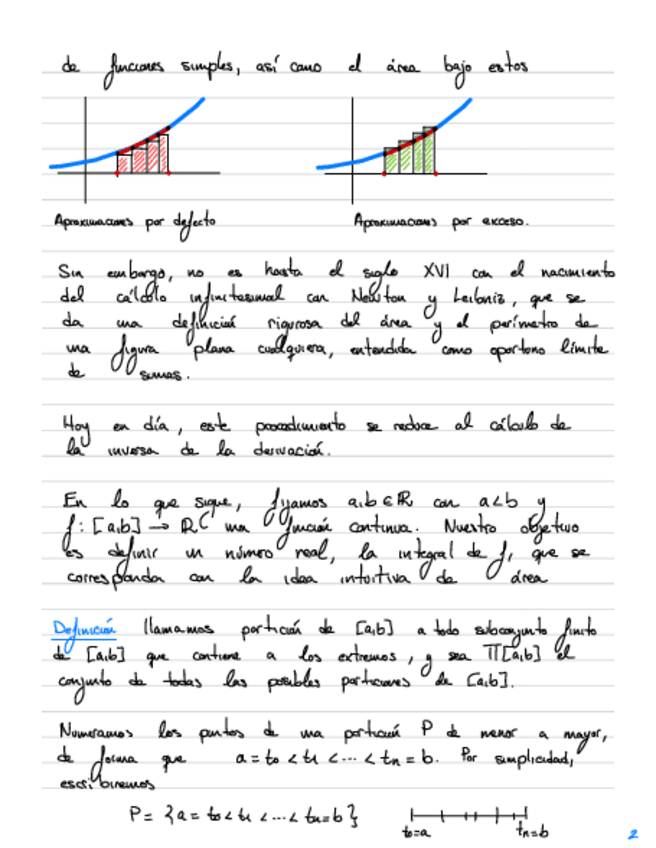 de funciones simples, así como el área bajo estos
Aproximaciones por defecto
Aproximaciones por exceso.
Sin embargo, no es hasta el siglo XVI con el nacimiento
del cálculo infinitesimal con Newton y Leibniz, que se
da una definición rigurosa del área y el perímetro de
una figura plana cualquiera, entendida como oportuno límite
de sumas.
Hoy en día, este procedimiento se reduce al cálculo de
la inversa de la derivación.
En lo que sigue, fijamos a,b ∈ ℝ con a<b y
f: [a,b] → ℝ una función continua. Nuestro objetivo
es definir un número real, la integral de f, que se
corresponda con la idea intuitiva de área
Definición llamamos partición de [a,b] a todo subconjunto finito
de [a,b] que contiene a los extremos, y sea Π[a,b] el
conjunto de todas las posibles particiones de [a,b].
Numeramos los puntos de una partición P de menor a mayor,
de forma que a = t₀ < t₁ < ... < tₙ = b. Por simplicidad,
escribiremos
P = {a = t₀ < t₁ < ... < tₙ = b}
t₀=a tₙ=b
2